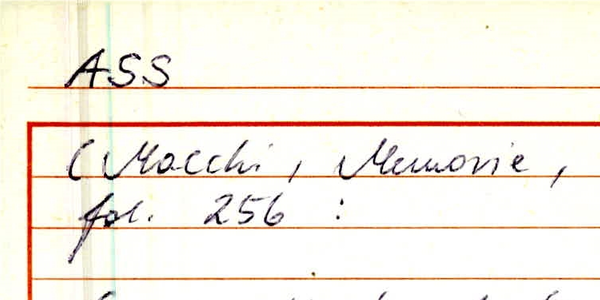 ASS
(Macchi, Memorie,
fol. 256 :